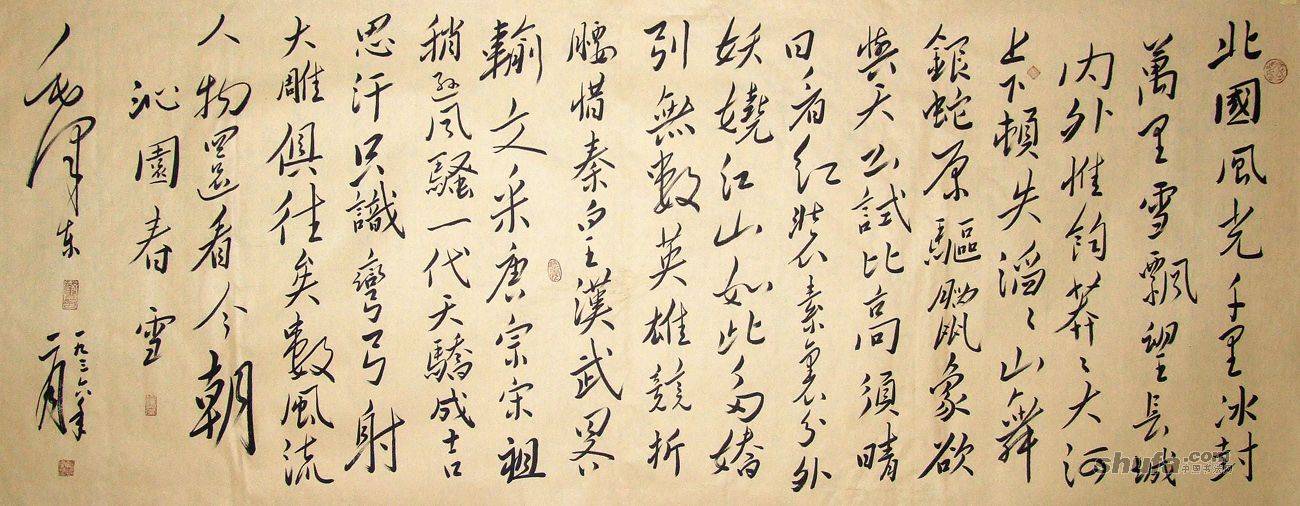 北國風光千里冰封
萬里雪飄望長城
内外惟餘莽〻大河
上下頓失滔〻山舞
銀蛇原驅臘象欲
與天公試比高須晴
日看紅裝素裹分外
妖嬈江山如此多嬌
引無數英雄競折
腰惜秦皇漢武畧
輸文采唐宗宋祖
稍遜風騷一代天驕成吉
思汗只識彎弓射
大雕俱往矣數風流
人物還看今朝
沁園春 雪
毛澤東
一九三六年
二月
shufa.com
中国书法网